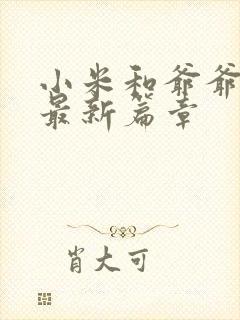 小米和爷爷
最新篇章
肖大可